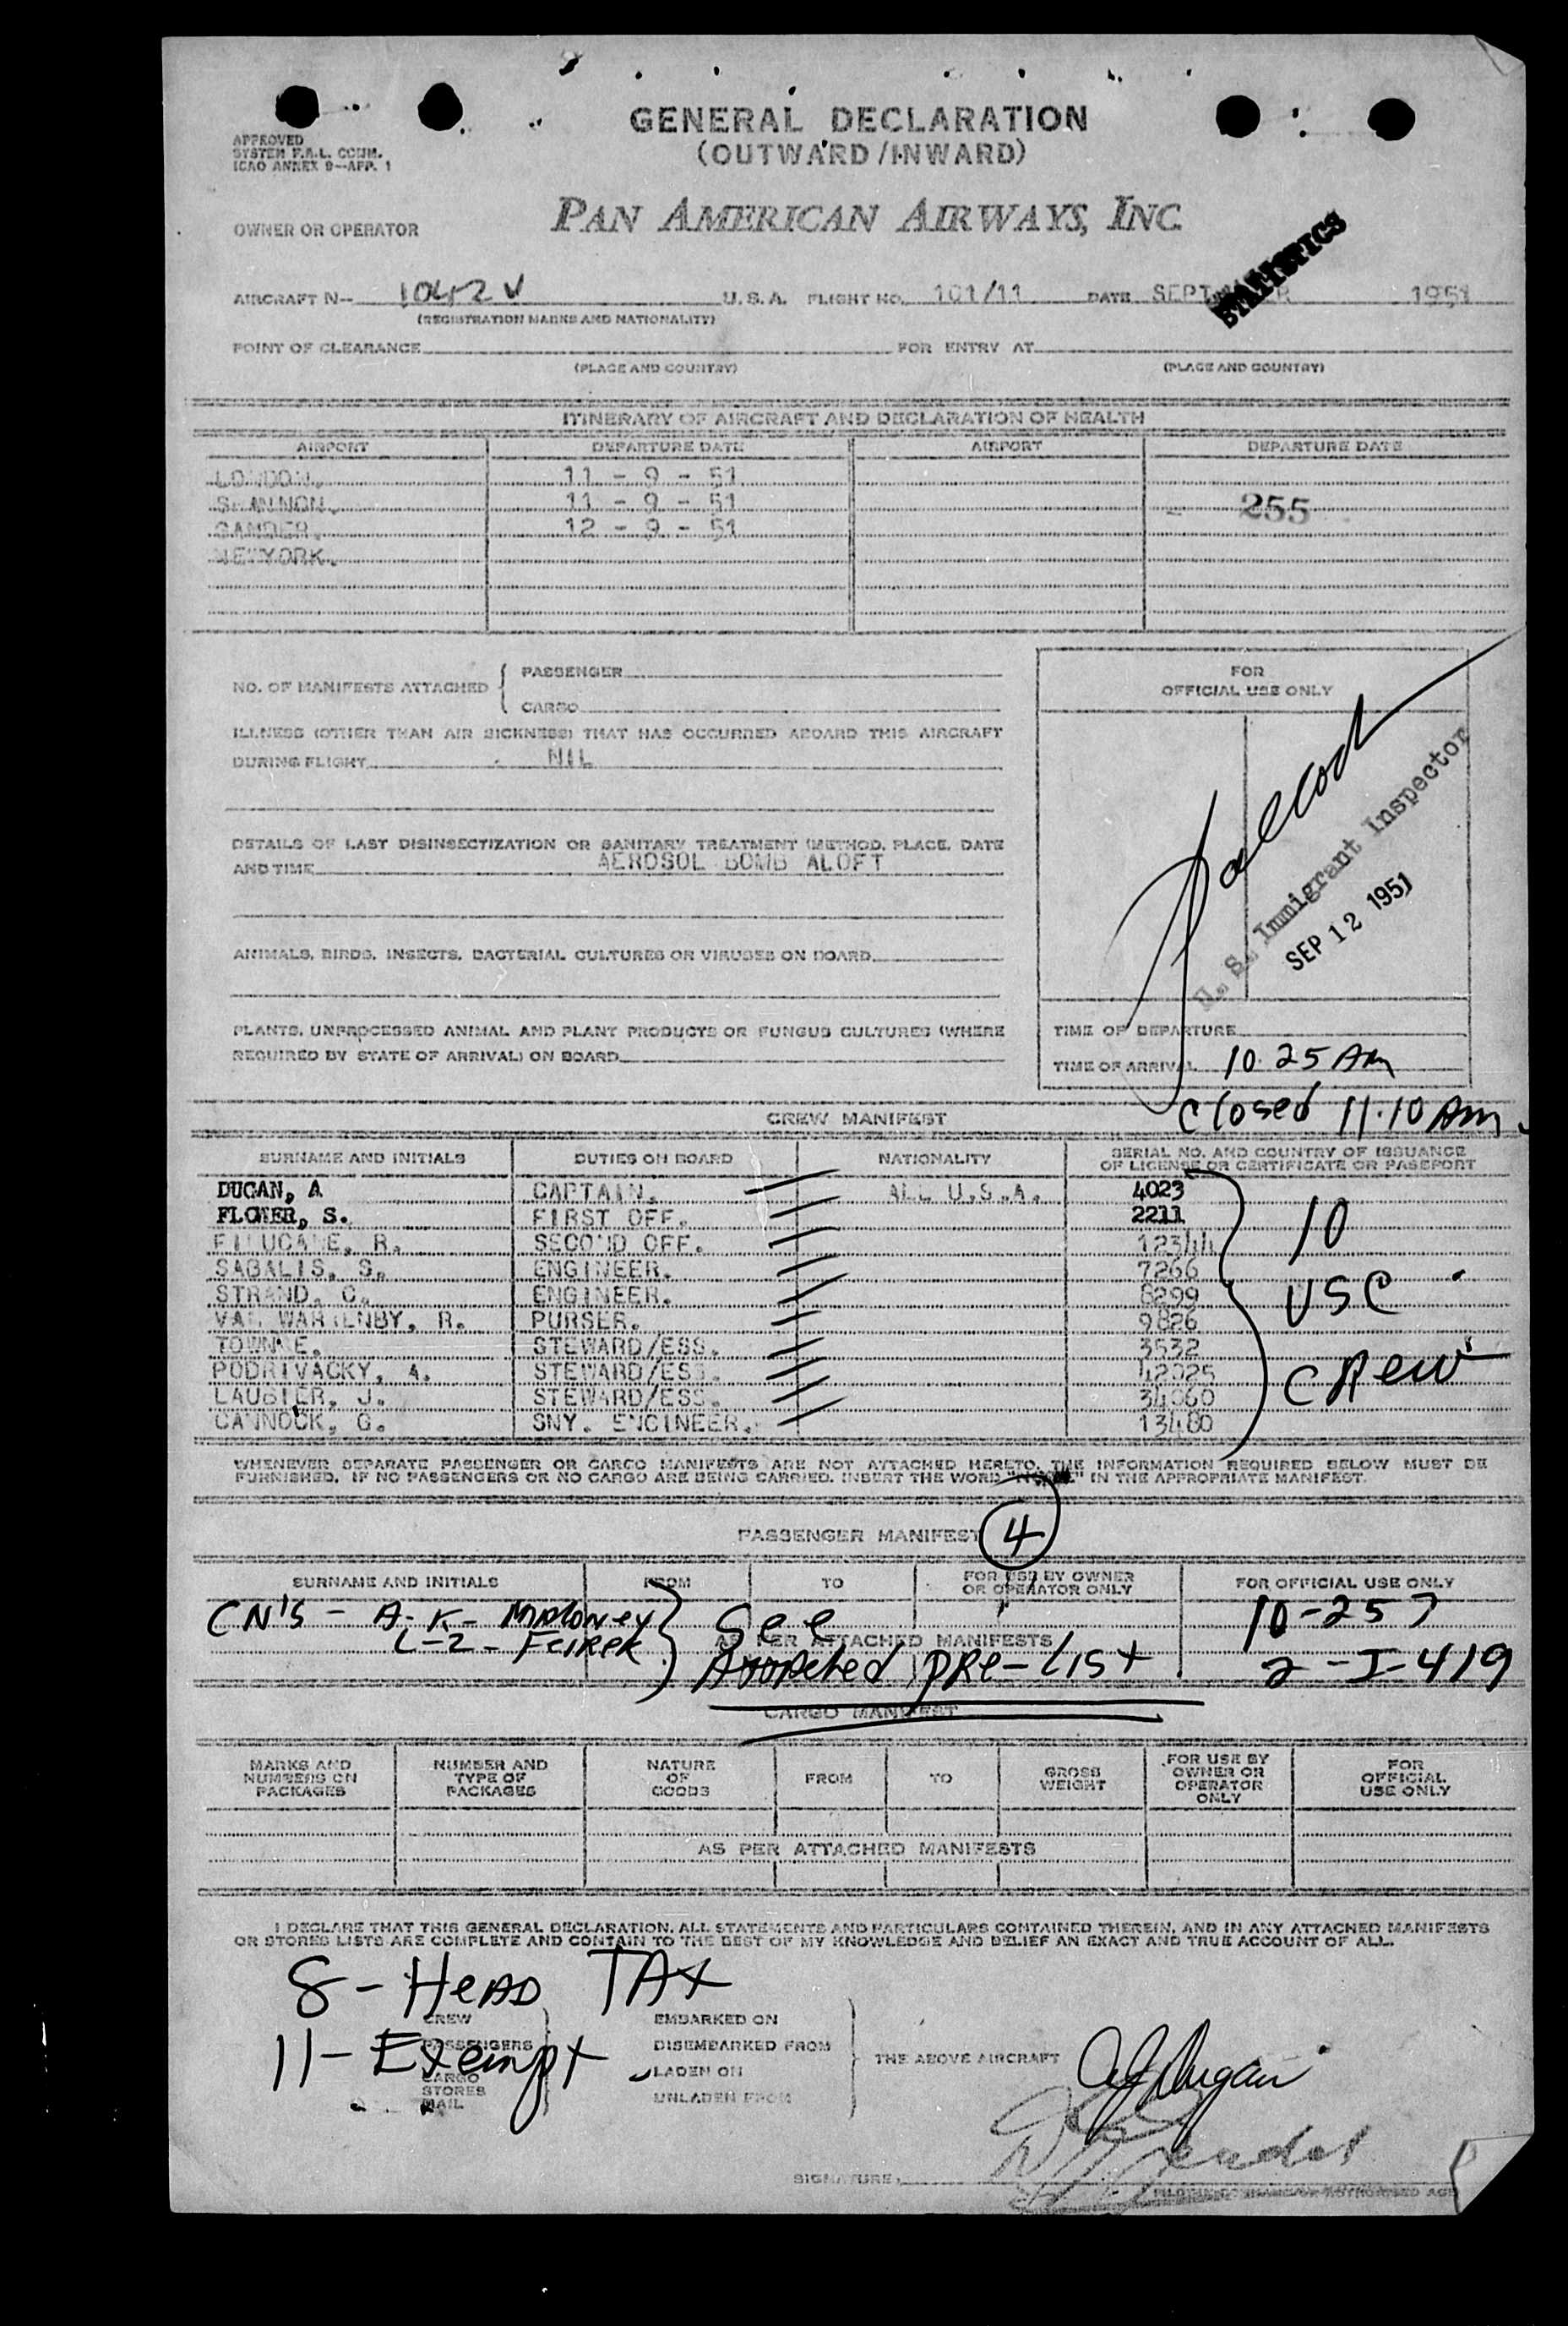 GENERAL DECLARATION
(OUTWARD/INWARD)
APPROVED
SYSTEM F.A.L. COMM.
ICAO ANNEX 9—APP. 1
PAN AMERICAN AIRWAYS, INC.
OWNER OR OPERATOR
STATISTICS
AIRCRAFT N— 1042V U.S.A. FLIGHT NO. 101/11 DATE 1951
(REGISTRATION MARKS AND NATIONALITY)
POINT OF CLEARANCE FOR ENTRY AT
(PLACE AND COUNTRY) (PLACE AND COUNTRY)
ITINERARY OF AIRCRAFT AND DECLARATION OF HEALTH
AIRPORT DEPARTURE DATE AIRPORT DEPARTURE DATE
LONDON. 11 - 9 - 51
SHANNON. 11 - 9 - 51 255
GANDER. 12 - 9 - 51
NEWYORK.
NO. OF MANIFESTS ATTACHED { PASSENGER
CARGO
FOR
OFFICIAL USE ONLY
ILLNESS (OTHER THAN AIR SICKNESS) THAT HAS OCCURRED ABOARD THIS AIRCRAFT
DURING FLIGHT NIL
DETAILS OF LAST DISINSECTIZATION OR SANITARY TREATMENT (METHOD, PLACE, DATE
AND TIME AEROSOL BOMB ALOFT
U. S. Immigrant Inspector
SEP 12 1951
ANIMALS, BIRDS, INSECTS, BACTERIAL CULTURES OR VIRUSES ON BOARD
PLANTS, UNPROCESSED ANIMAL AND PLANT PRODUCTS OR FUNGUS CULTURES (WHERE
REQUIRED BY STATE OF ARRIVAL) ON BOARD
TIME OF DEPARTURE
TIME OF ARRIVAL 10 25 AM
Closed 11.10 Am.
CREW MANIFEST
SURNAME AND INITIALS DUTIES ON BOARD NATIONALITY SERIAL NO. AND COUNTRY OF ISSUANCE
OF LICENSE OR CERTIFICATE OR PASSPORT
DUGAN, A CAPTAIN. ALL U.S.A. 4023
FLOWER, S. FIRST OFF. 2211
FINUCANE, R. SECOND OFF. 12344
SABALIS, S. ENGINEER. 7266
STRAND, C. ENGINEER. 8299
R. PURSER. 9826
TOWNE. STEWARD/ESS. 3532
PODRIVACKY, A. STEWARD/ESS. 42025
LAUBIER, J. STEWARD/ESS. 34060
CANNOCK, G. SNY. ENGINEER. 13480
10
USC
CREW
WHENEVER SEPARATE PASSENGER OR CARGO MANIFESTS ARE NOT ATTACHED HERETO, THE INFORMATION REQUIRED BELOW MUST BE
FURNISHED. IF NO PASSENGERS OR NO CARGO ARE BEING CARRIED, INSERT THE WORD "NONE" IN THE APPROPRIATE MANIFEST.
PASSENGER MANIFEST 4
SURNAME AND INITIALS FROM TO FOR USE BY OWNER
OR OPERATOR ONLY FOR OFFICIAL USE ONLY
CN'S - A-K- Maloney See 10-257
AS PER ATTACHED MANIFESTS
L-Z- pre-list 2-I-419
CARGO MANIFEST
MARKS AND
NUMBERS ON
PACKAGES
NUMBER AND
TYPE OF
PACKAGES
NATURE
OF
GOODS
FROM
TO
GROSS
WEIGHT
FOR USE BY
OWNER OR
OPERATOR
ONLY
FOR
OFFICIAL
USE ONLY
AS PER ATTACHED MANIFESTS
I DECLARE THAT THIS GENERAL DECLARATION, ALL STATEMENTS AND PARTICULARS CONTAINED THEREIN, AND IN ANY ATTACHED MANIFESTS
OR STORES LISTS ARE COMPLETE AND CONTAIN TO THE BEST OF MY KNOWLEDGE AND BELIEF AN EXACT AND TRUE ACCOUNT OF ALL.
8 - HEAD TAX
11 - Exempt
CREW
PASSENGERS
CARGO
STORES
MAIL
EMBARKED ON
DISEMBARKED FROM
LADEN ON
UNLADEN FROM
THE ABOVE AIRCRAFT
SIGNATURE.